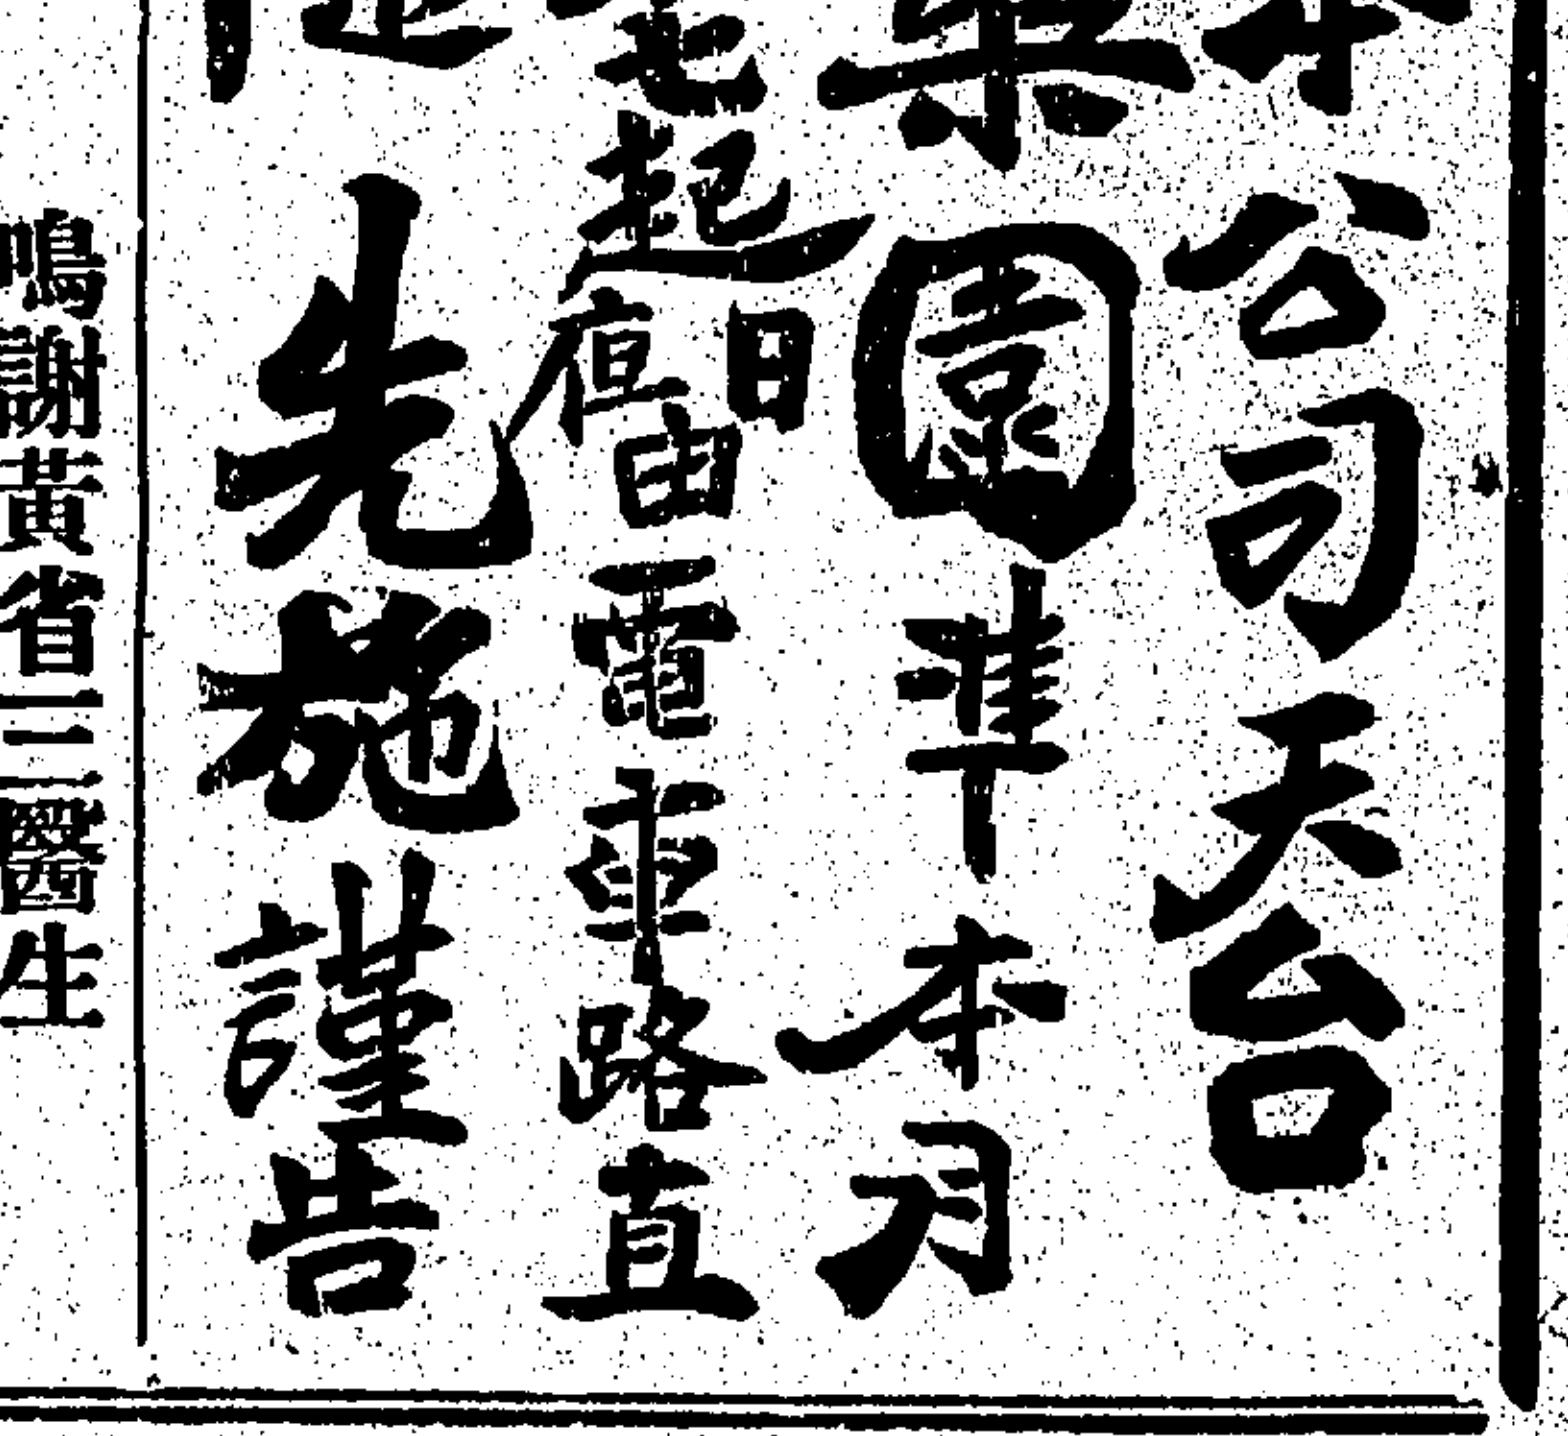 公司天台
樂園準本月
起日由電車路直
先施謹告
鳴謝黃省三醫生